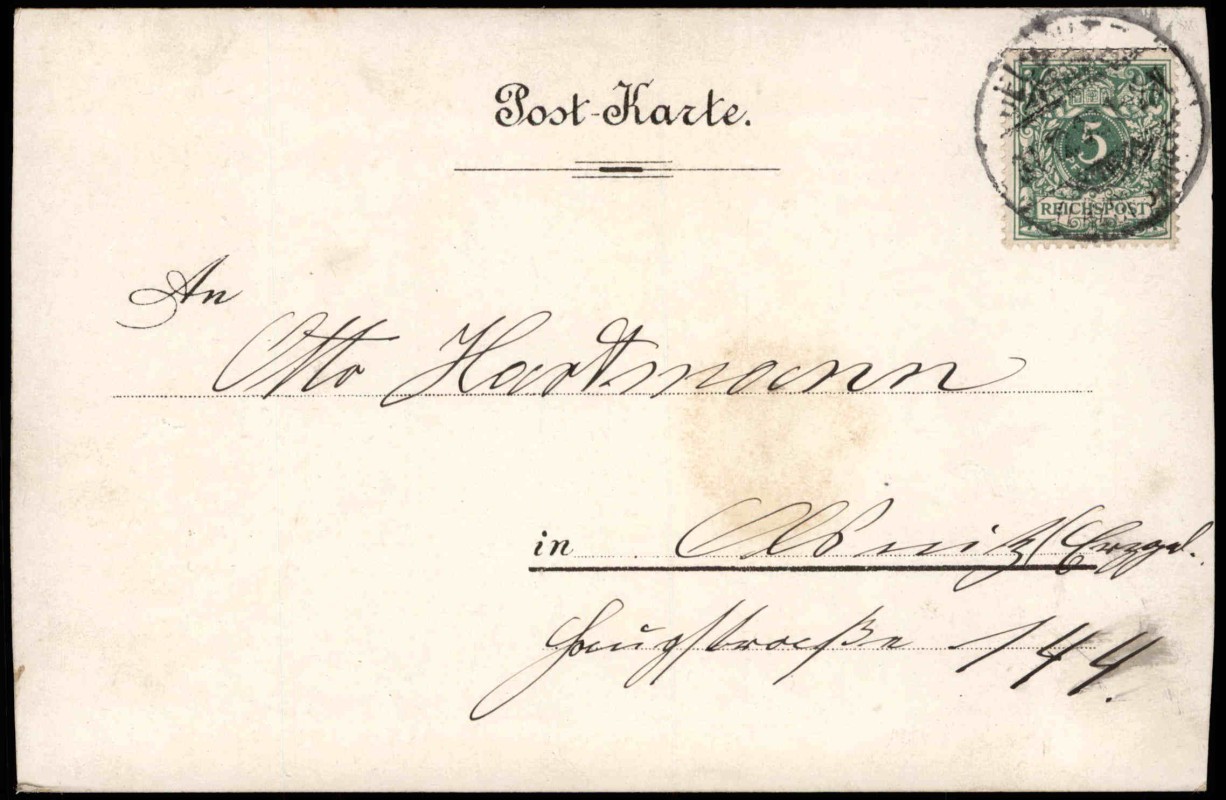 Post-Karte.
5
REICHSPOST
An
Otto Hartmann
in Olbnitz/Erzgeb.
Hauptstraße 144.